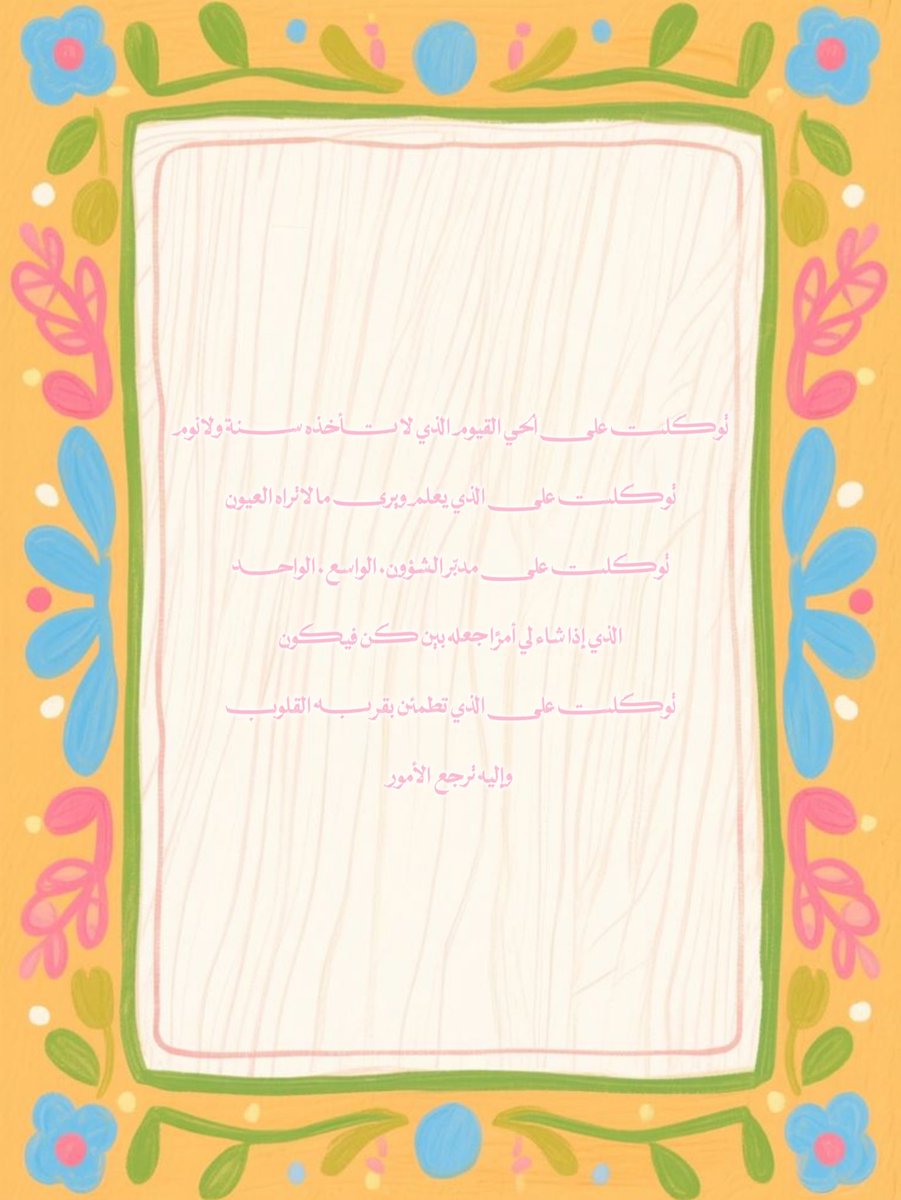 توكلت على الحي القيوم الذي لا تأخذه سنة ولا نوم
توكلت على الذي يعلم ويرى ما لا تراه العيون
توكلت على مدبّر الشؤون. الواسع. الواحد
الذي إذا شاء لي أمرًا جعله بين كن فيكون
توكلت على الذي تطمئن بقربه القلوب
وإليه ترجع الأمور